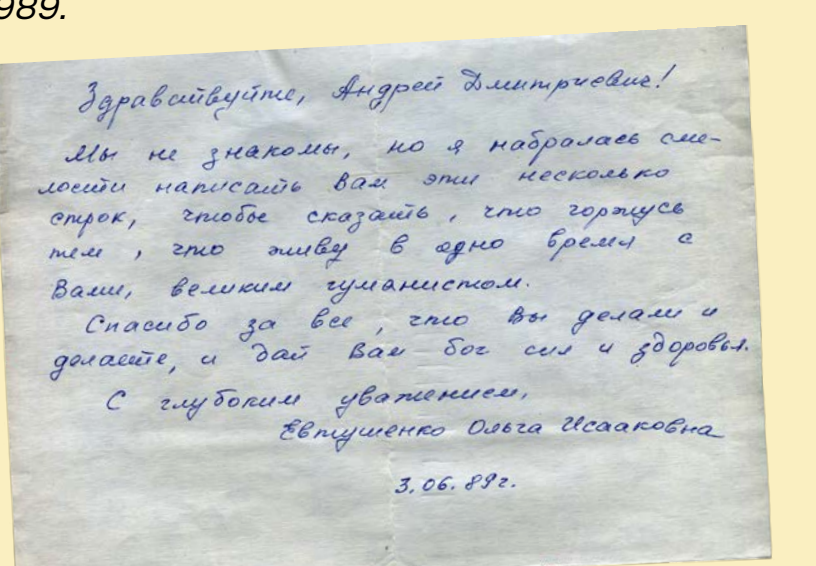 989.
Здравствуйте, Андрей Дмитриевич!
Мы не знакомы, но я набралась сме-
лости написать Вам эти несколько
строк, чтобы сказать, что горжусь
тем, что живу в одно время с
Вами, великим гуманистом.
Спасибо за все, что Вы делали и
делаете, и дай Вам бог сил и здоровья.
С глубоким уважением,
Евтушенко Ольга Исааковна
3.06.89г.